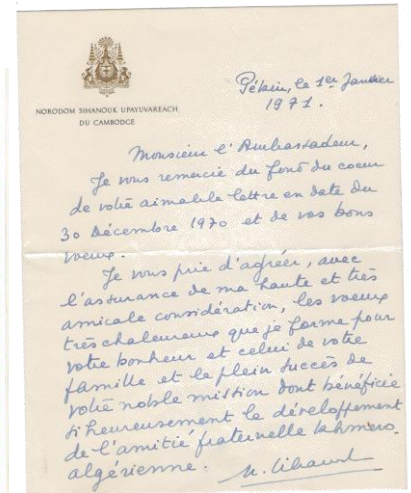 NORODOM SIHANOUK UPAYUVAREACH
DU CAMBODGE
Pékin, le 1er Janvier
1971.
Monsieur l'Ambassadeur,
Je vous remercie du fond du coeur
de votre aimable lettre en date du
30 Décembre 1970 et de vos bons
voeux.
Je vous prie d'agréer, avec
l'assurance de ma haute et très
amicale considération, les voeux
très chaleureux que je forme pour
votre bonheur et celui de votre
famille et le plein succès de
votre noble mission dont bénéficie
si heureusement le développement
de l'amitié fraternelle khmero-
algérienne.
N. Sihanouk